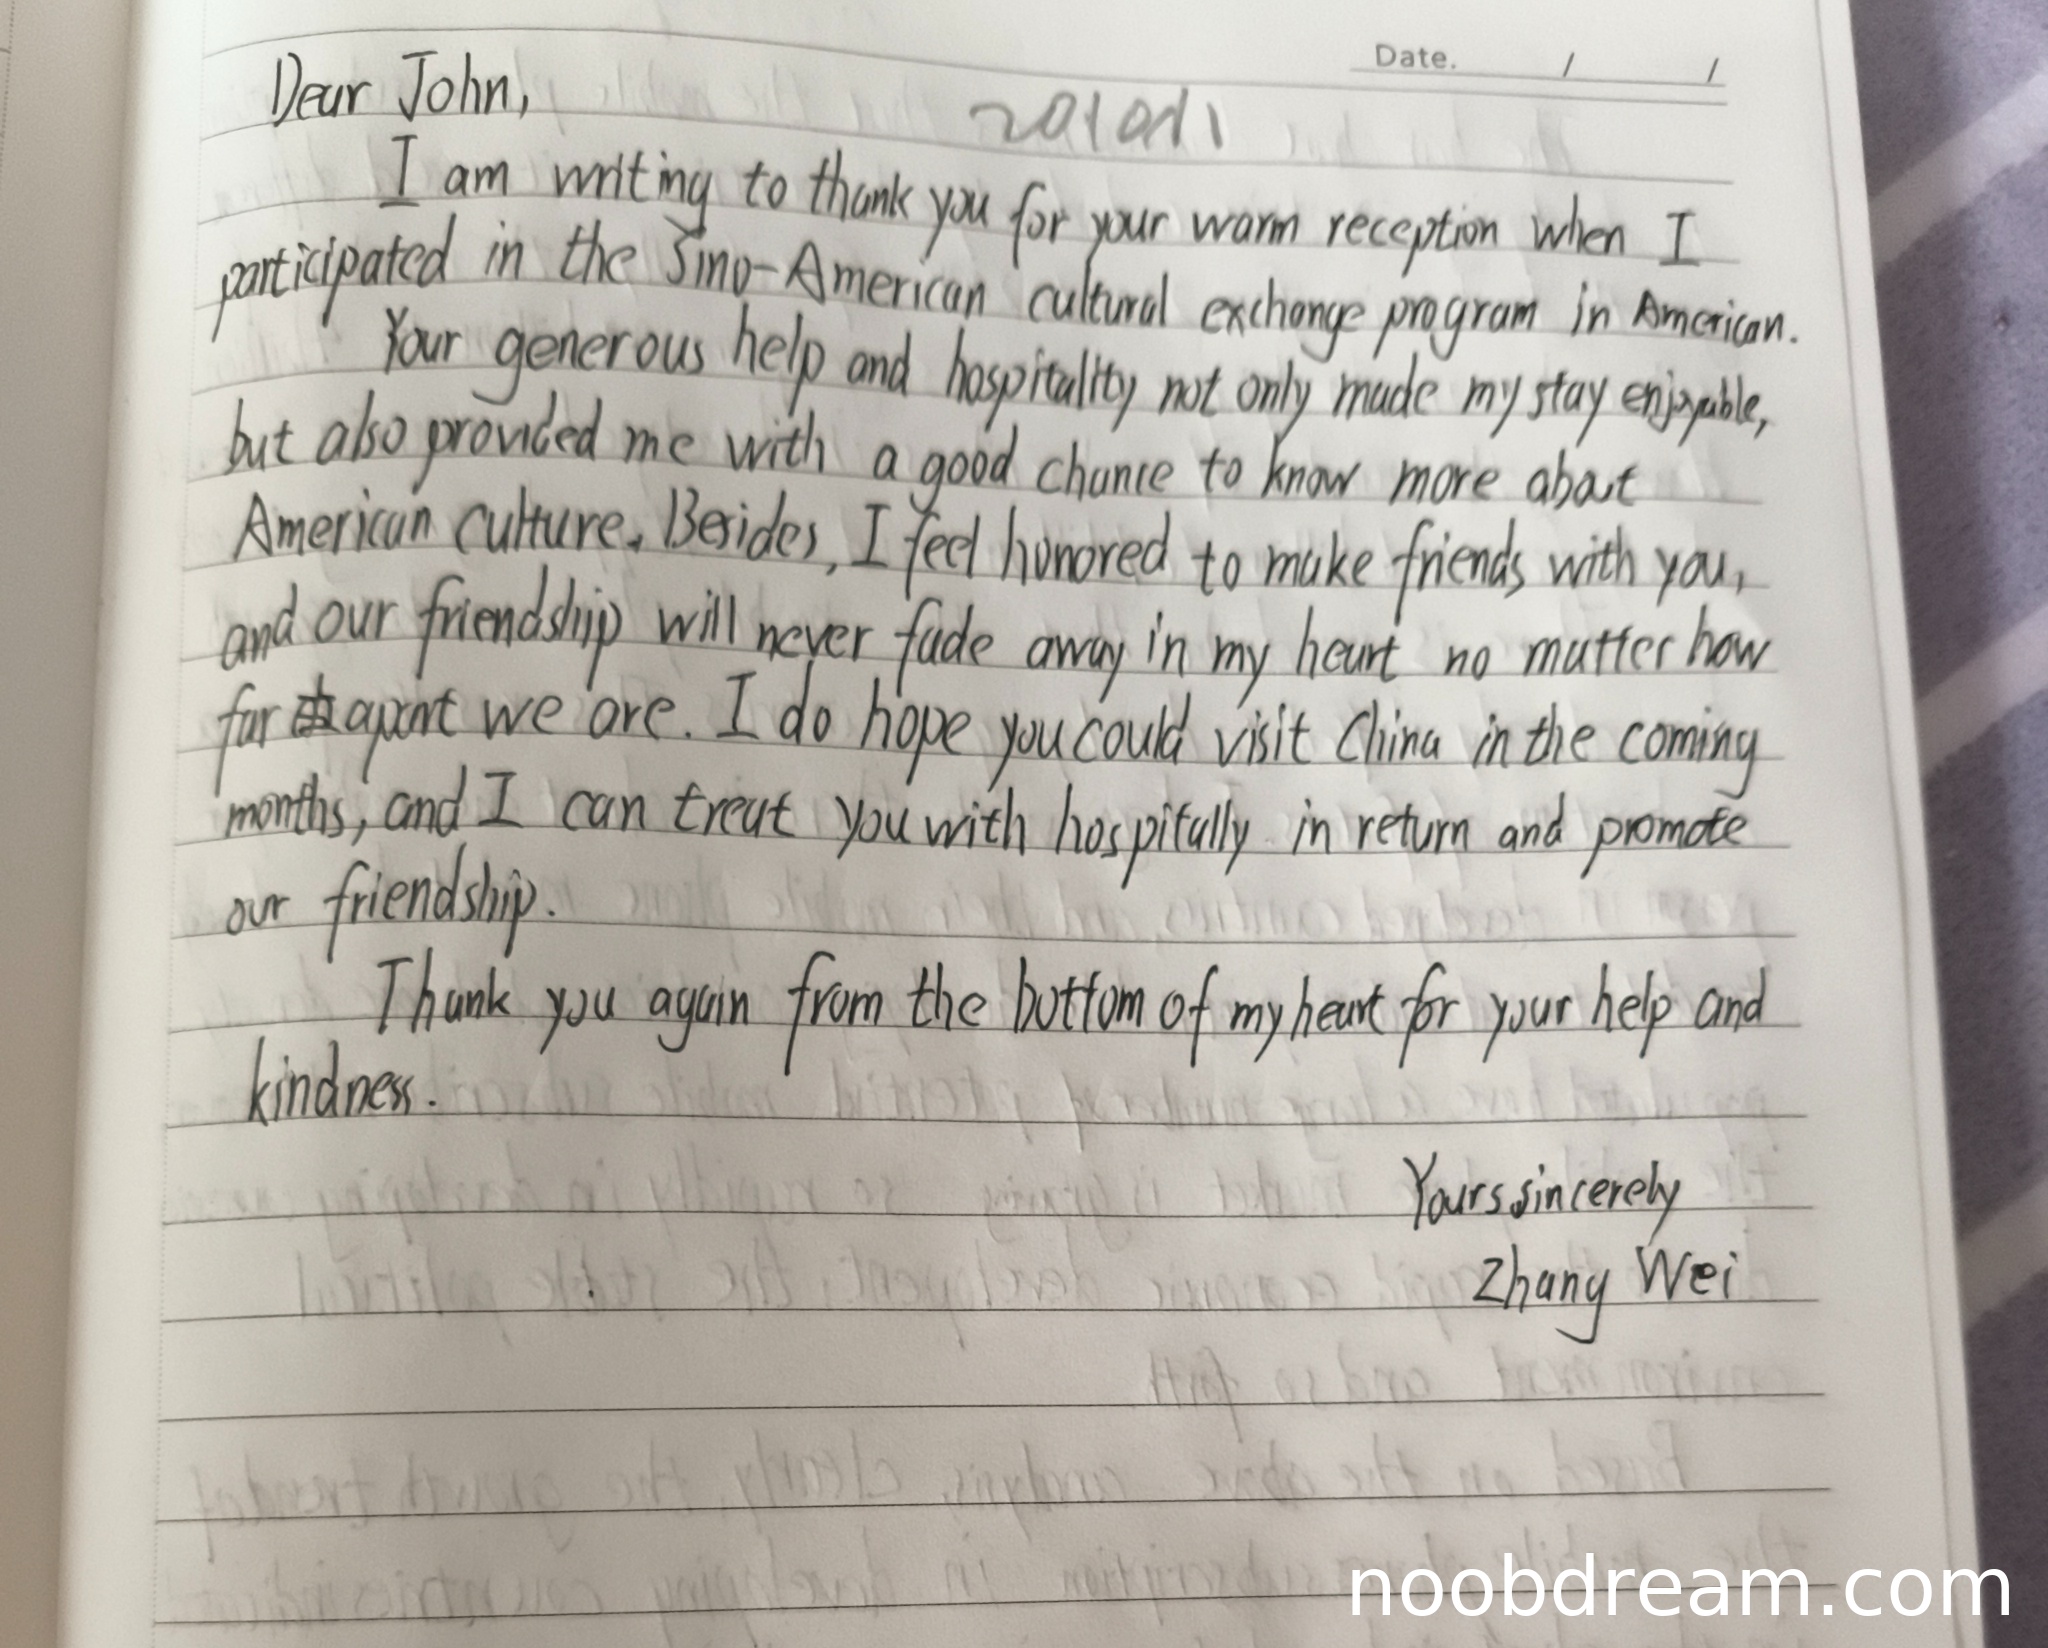 Date. / /
Dear John,
2010年1
I am writing to thank you for your warm reception when I
participated in the Sino-American cultural exchange program in American.
Your generous help and hospitality not only made my stay enjoyable,
but also provided me with a good chance to know more about
American culture. Besides, I feel honored to make friends with you,
and our friendship will never fade away in my heart no matter how
far apart we are. I do hope you could visit China in the coming
months, and I can treat you with hospitally in return and promote
our friendship.
Thank you again from the bottom of my heart for your help and
kindness.
Yours sincerely
Zhang Wei
noobdream.com